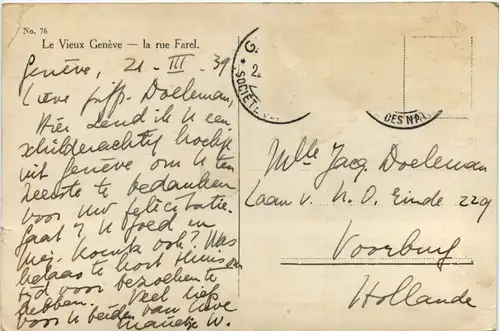 No. 76
Le Vieux Genève — la rue Farel.
Genève, 21 - III - 39
Lieve Doeleman,
Hier zend ik U een
schilderachtig hoekje
uit Genève om U ten
zeerste te bedanken
voor Uw felicitatie.
Gaat 't U goed en
Mej. ook? Was
helaas te kort thuis om
tijd voor bezoeken te
hebben. Veel liefs
voor U beiden van Uwe
W.
G
2
* SOCIÉT
DES NAT
Mlle Jacq. Doeleman
Laan v. N. O. Einde 229
Voorburg
Hollande